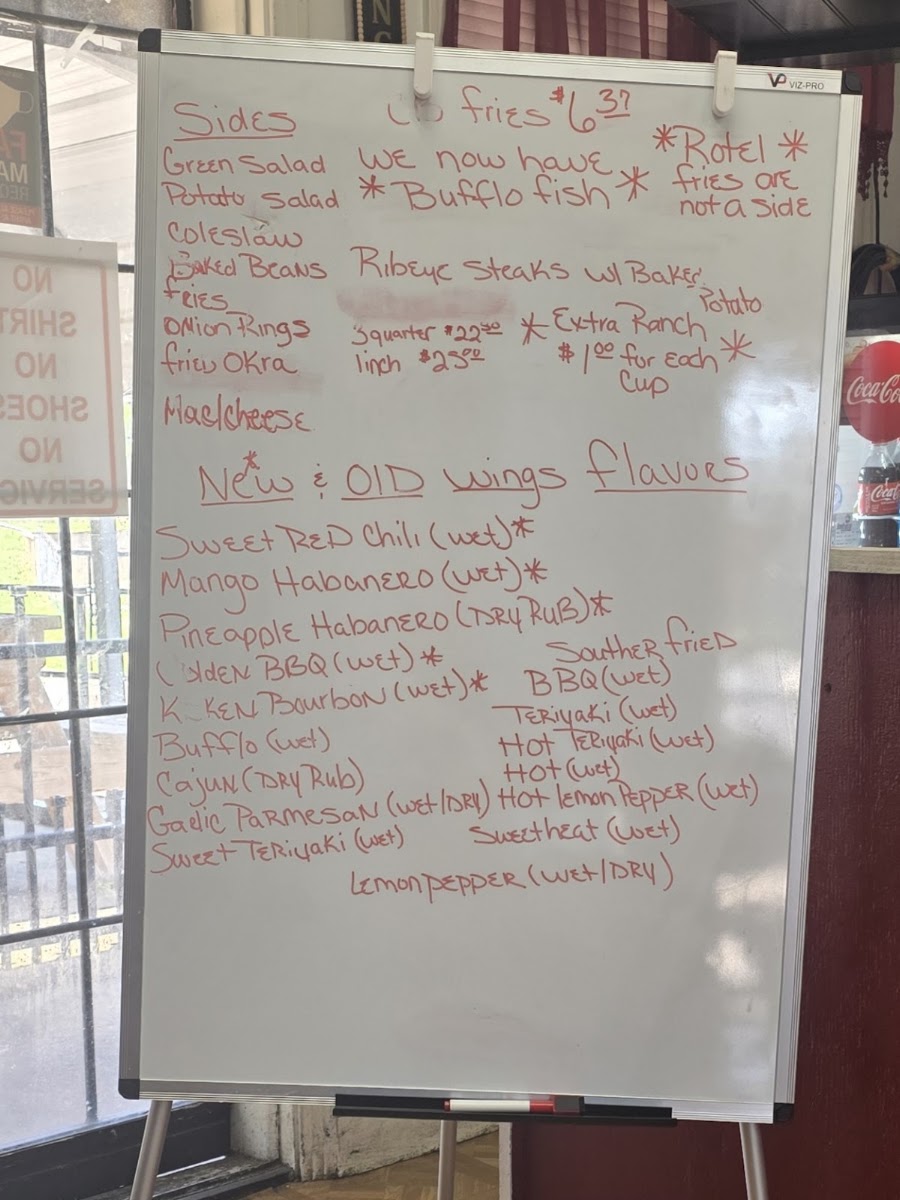 VIZ-PRO
fries $6.37
Sides
Green Salad
Potato Salad
Coleslaw
Baked Beans
fries
Onion Rings
fried Okra
Mac/cheese
We now have
* Bufflo fish *
*Rotel *
fries are
not a side
Ribeye Steaks w/ Baked
Potato
3quarter $22.50
1inch $25.00
* Extra Ranch
$1.00 for each *
Cup
New* & Old wings flavors
Sweet Red Chili (wet)*
Mango Habanero (wet)*
Pineapple Habanero (Dry Rub)*
BBQ (wet)*
Bourbon (wet)*
Bufflo (wet)
Cajun (Dry Rub)
Gaelic Parmesan (wet/Dry)
Sweet Teriyaki (wet)
Souther fried
BBQ (wet)
Teriyaki (wet)
Hot Teriyaki (wet)
Hot (wet)
Hot lemon Pepper (wet)
Sweetheat (wet)
Lemonpepper (wet/Dry)
NO
SHIRT
NO
SHOES
NO
SERVIC
Coca-Co
Coca